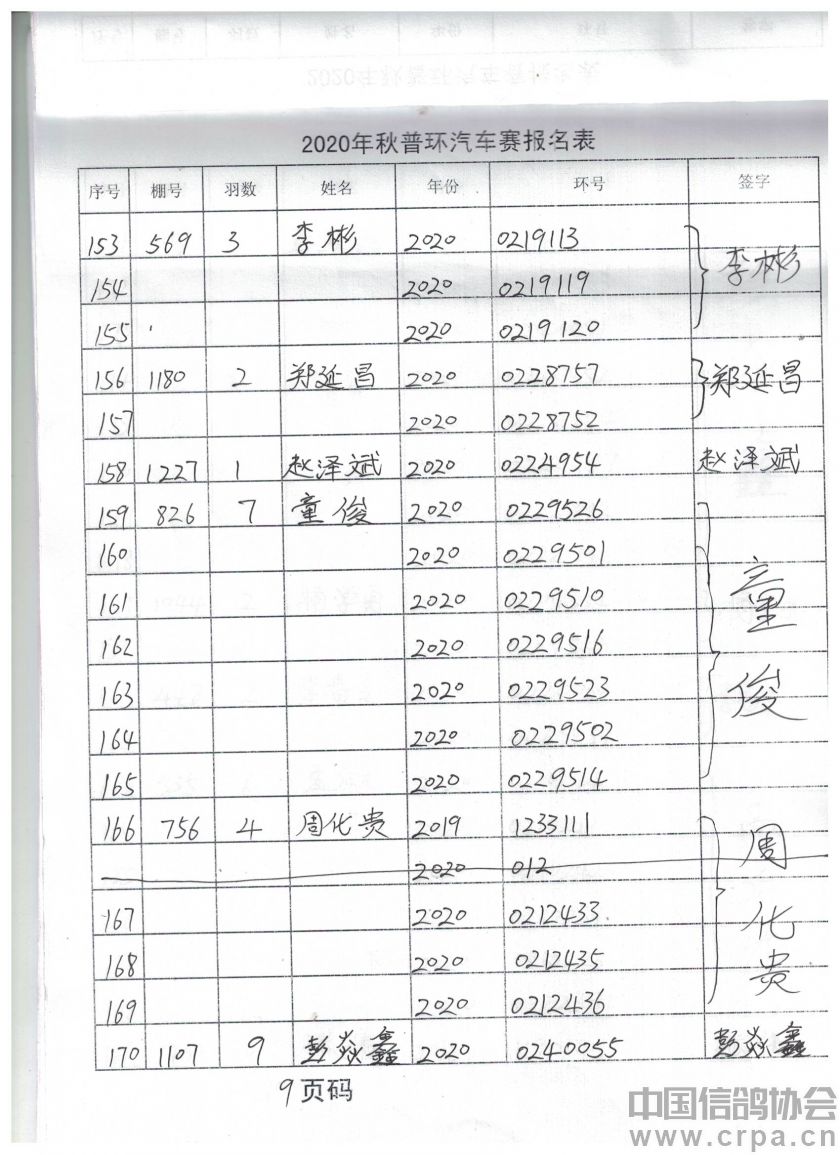 2020年秋普环汽车赛报名表
序号 棚号 羽数 姓名 年份 环号 签字
153 569 3 李彬 2020 0219113 李彬
154 2020 0219119
155 2020 0219120
156 1180 2 郑延昌 2020 0228757 郑延昌
157 2020 0228752
158 1227 1 赵泽斌 2020 0224954 赵泽斌
159 826 7 童俊 2020 0229526 童俊
160 2020 0229501
161 2020 0229510
162 2020 0229516
163 2020 0229523
164 2020 0229502
165 2020 0229514
166 756 4 周化贵 2019 1233111 周化贵
2020 012
167 2020 0212433
168 2020 0212435
169 2020 0212436
170 1107 9 彭焱鑫 2020 0240055 彭焱鑫
9页码
中国信鸽协会
www.crpa.cn